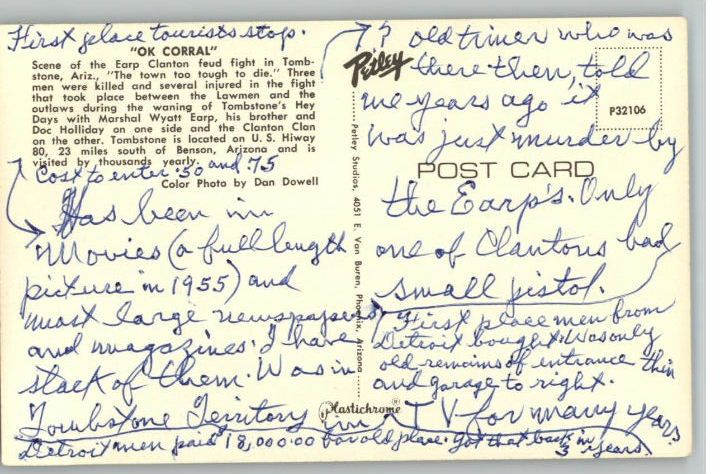 First place tourists stop.
"OK CORRAL"
Scene of the Earp Clanton feud fight in Tomb-
stone, Ariz., "The town too tough to die." Three
men were killed and several injured in the fight
that took place between the Lawmen and the
outlaws during the waning of Tombstone's Hey
Days with Marshal Wyatt Earp, his brother and
Doc Holliday on one side and the Clanton Clan
on the other. Tombstone is located on U.S. Hiway
80, 23 miles south of Benson, Arizona and is
visited by thousands yearly.
Cost to enter .50 and .75
Color Photo by Dan Dowell
Has been in
Movies (a full length
picture in 1955) and
most large newspapers
and magazines. I have
stack of them. Was in
Tombstone Territory in TV for many years
Detroit men paid 18,000.00 for old place. Got that back in
3 years.
Petley
Petley Studios, 4051 E. Van Buren, Phoenix, Arizona
Plastichrome®
? old timer who was
there then, told
me years ago it
was just murder by
POST CARD
P32106
the Earp's. Only
one of Clantons had
small pistol.
First place men from
Detroit bought. Was only
old remains of entrance then
and garage to right.